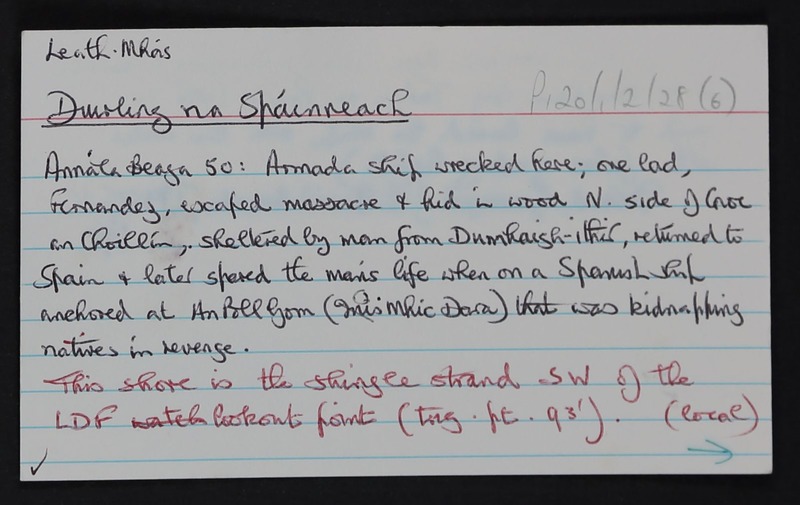 Leath-Mhás
Duirling na Spáinneach P120/1/2/28(6)
Annála Beaga 50: Armada ship wrecked here; one lad,
Fernandez, escaped massacre & hid in wood N. side of Cnoc
an Choillín, sheltered by man from Dumhaigh-ithir, returned to
Spain & later spared the man's life when on a Spanish ship
anchored at An Poll Gorm (Inis Mhic Dara) that was kidnapping
natives in revenge.
This shore is the shingle strand SW of the
LDF watch lookout point (trig. pt. 93'). (local)